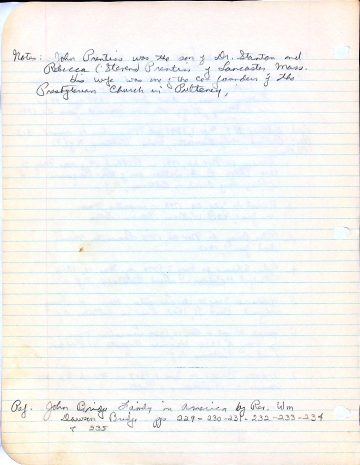 Notes: John Prentiss was the son of Dr. Stanton and
Rebecca (Stevens) Prentiss of Lancaster Mass.
his wife was one of the co founders of the
Presbyterian Church in Pulteney,
Ref. John Bridge Family in America by Rev. Wm
Dawson Bridge pgs 229-230-231-232-233-234
& 235